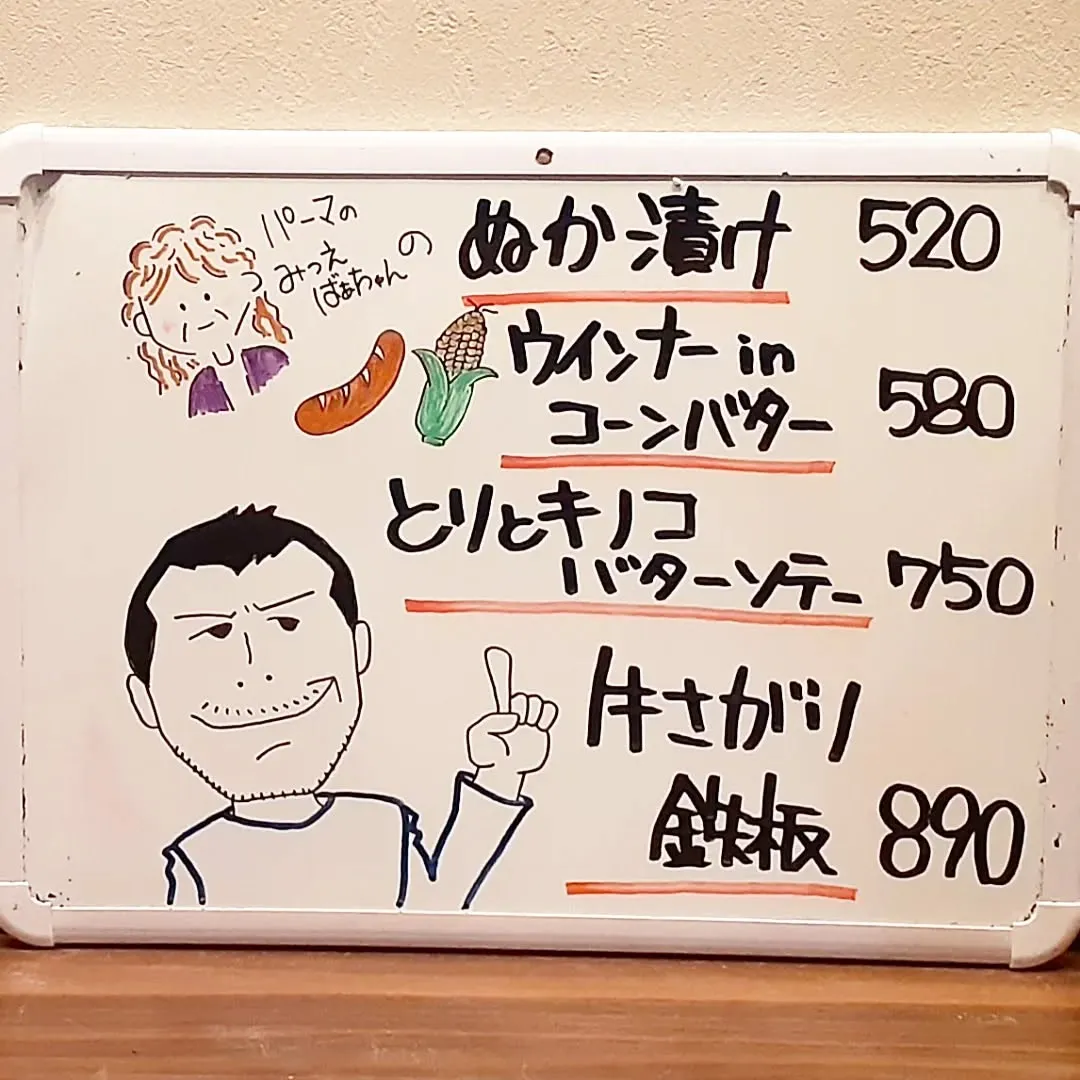 パーマの
みっえ
ばぁちゃんの
ぬか漬け 520
ウインナー in
コーンバター 580
とりとキノコ
バターソテー 750
牛さがり
鉄板 890